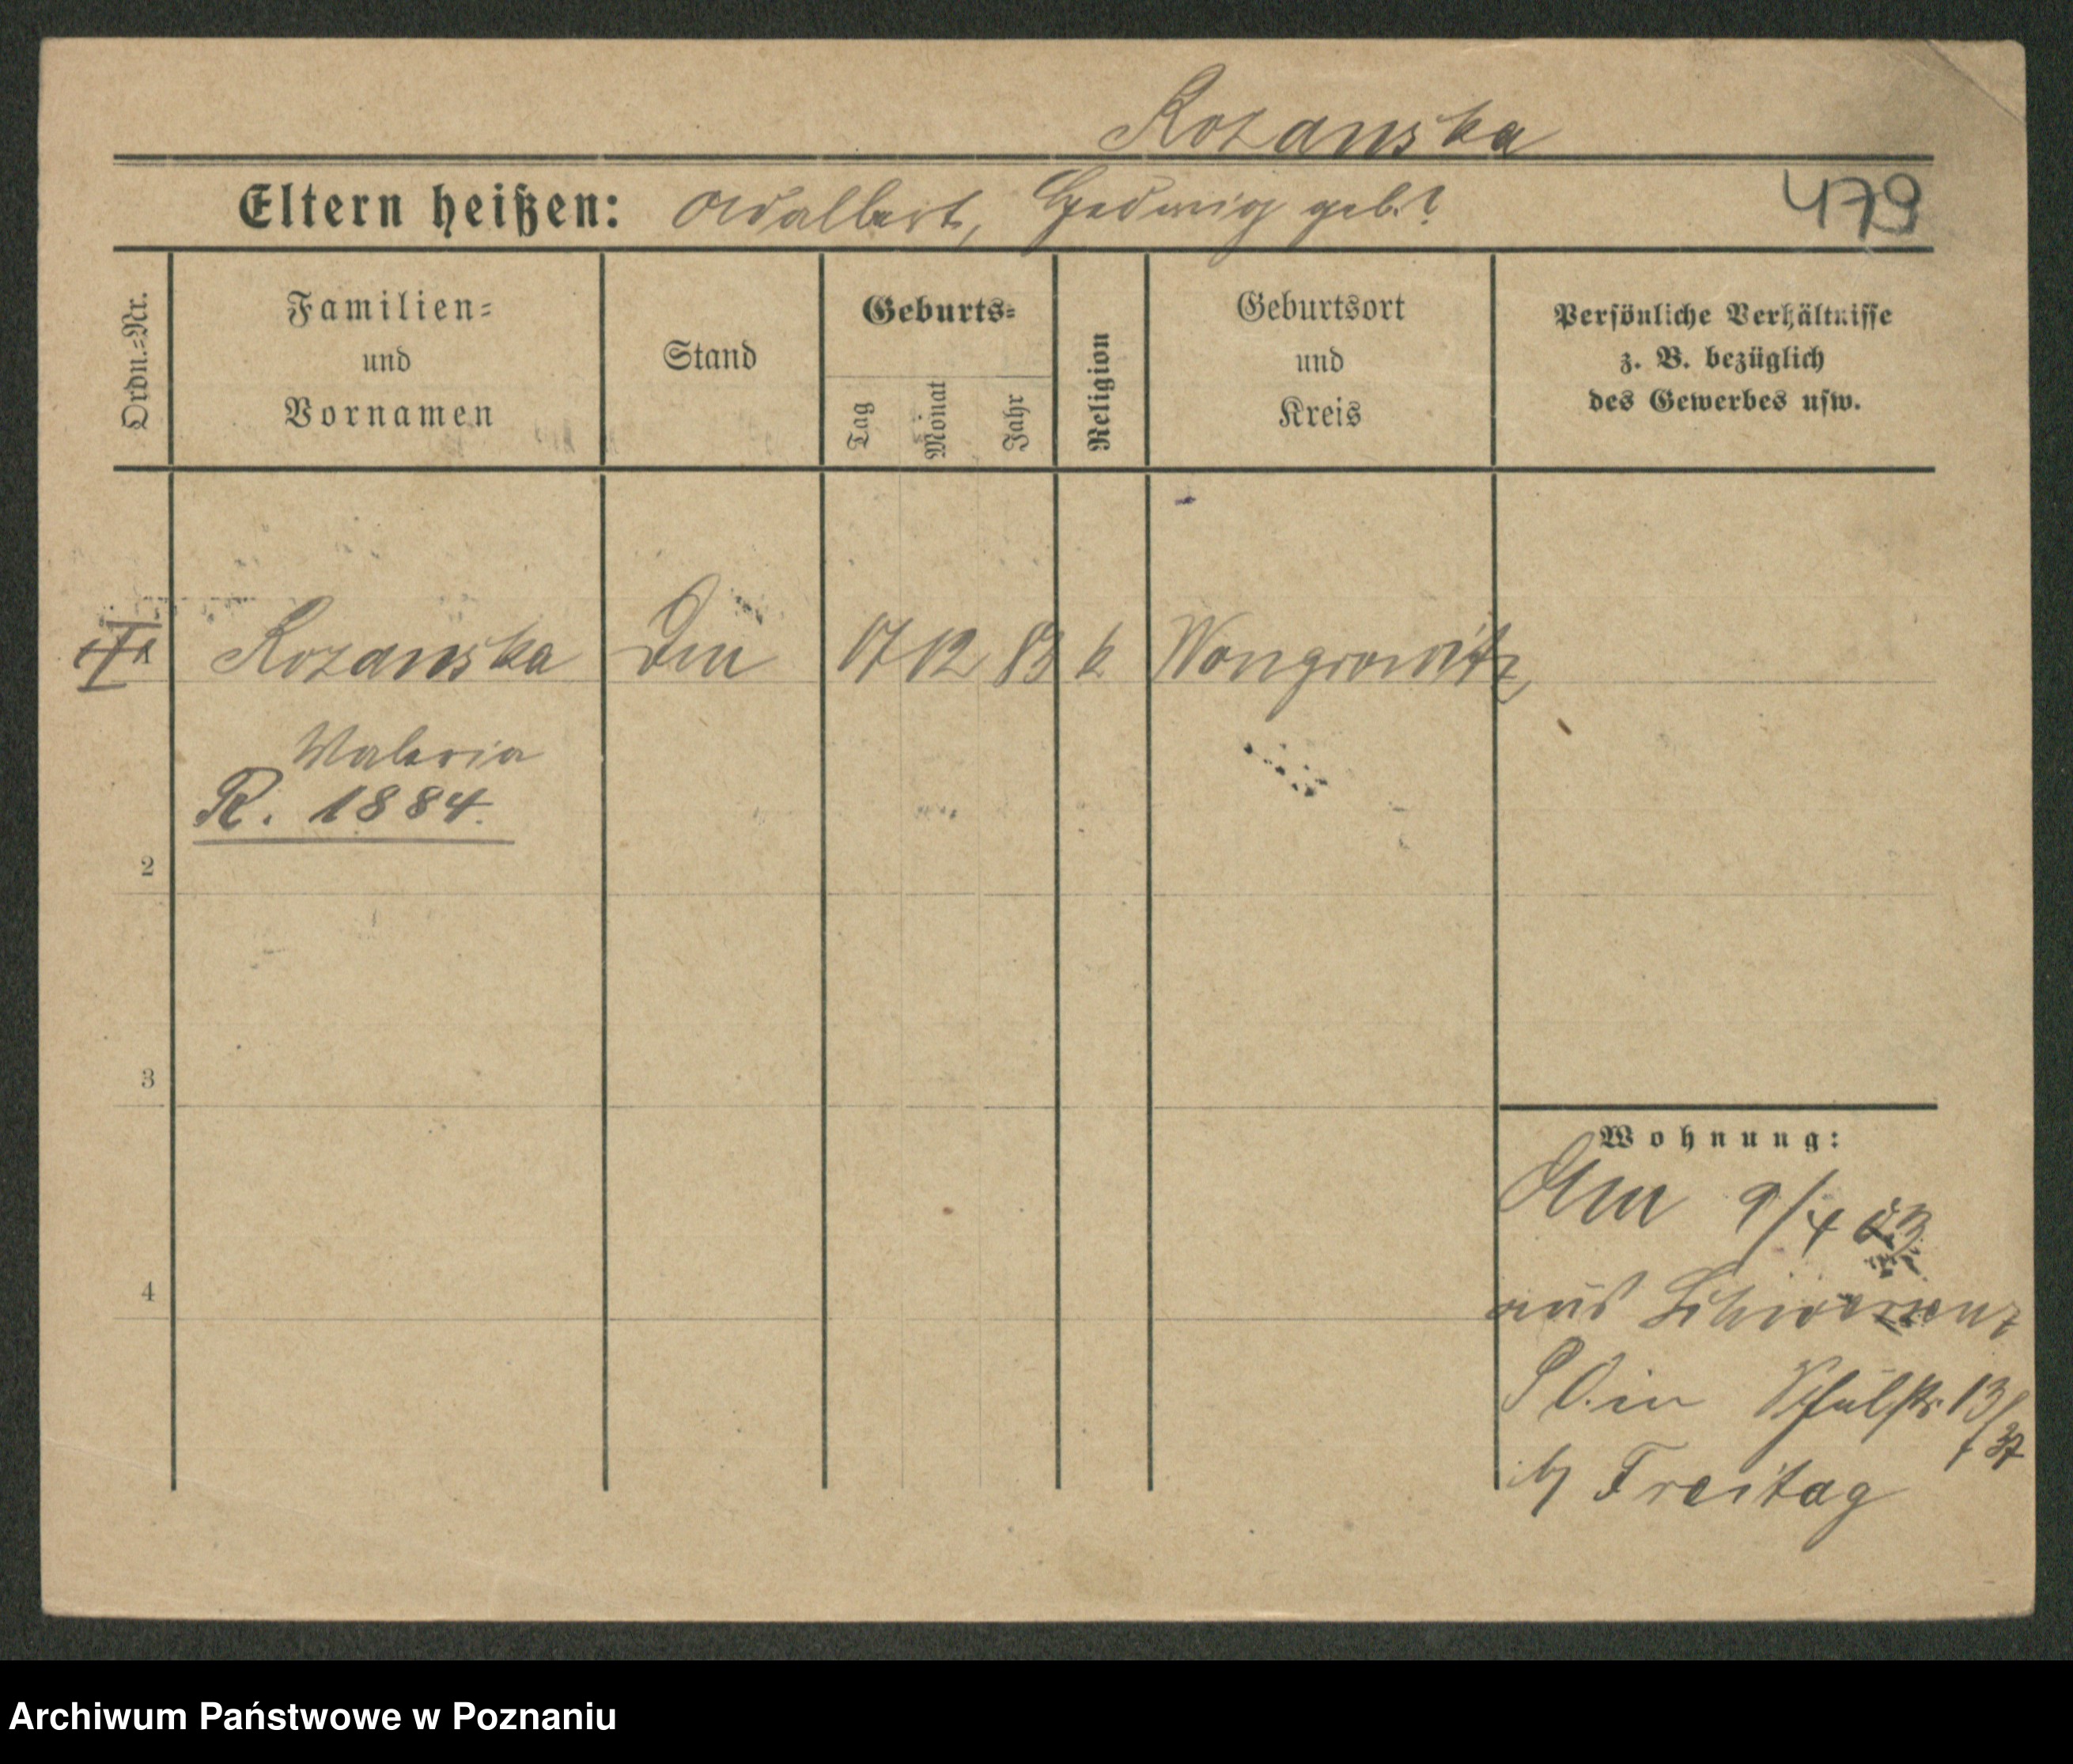 Rozanska
Eltern heißen: Adalbert, Hedwig geb. ?
479
Ordn.=Nr.
Familien=
und
Vornamen
Stand
Geburts=
Tag
Monat
Jahr
Religion
Geburtsort
und
Kreis
Persönliche Verhältnisse
z. B. bezüglich
des Gewerbes usw.
Rozanska 17 12 83 k Wongrowitz
Waleria
R. 1884.
2
3
4
Wohnung:
9/4 03
aus Schwersenz
Schulstr. 13
by Freitag
Archiwum Państwowe w Poznaniu